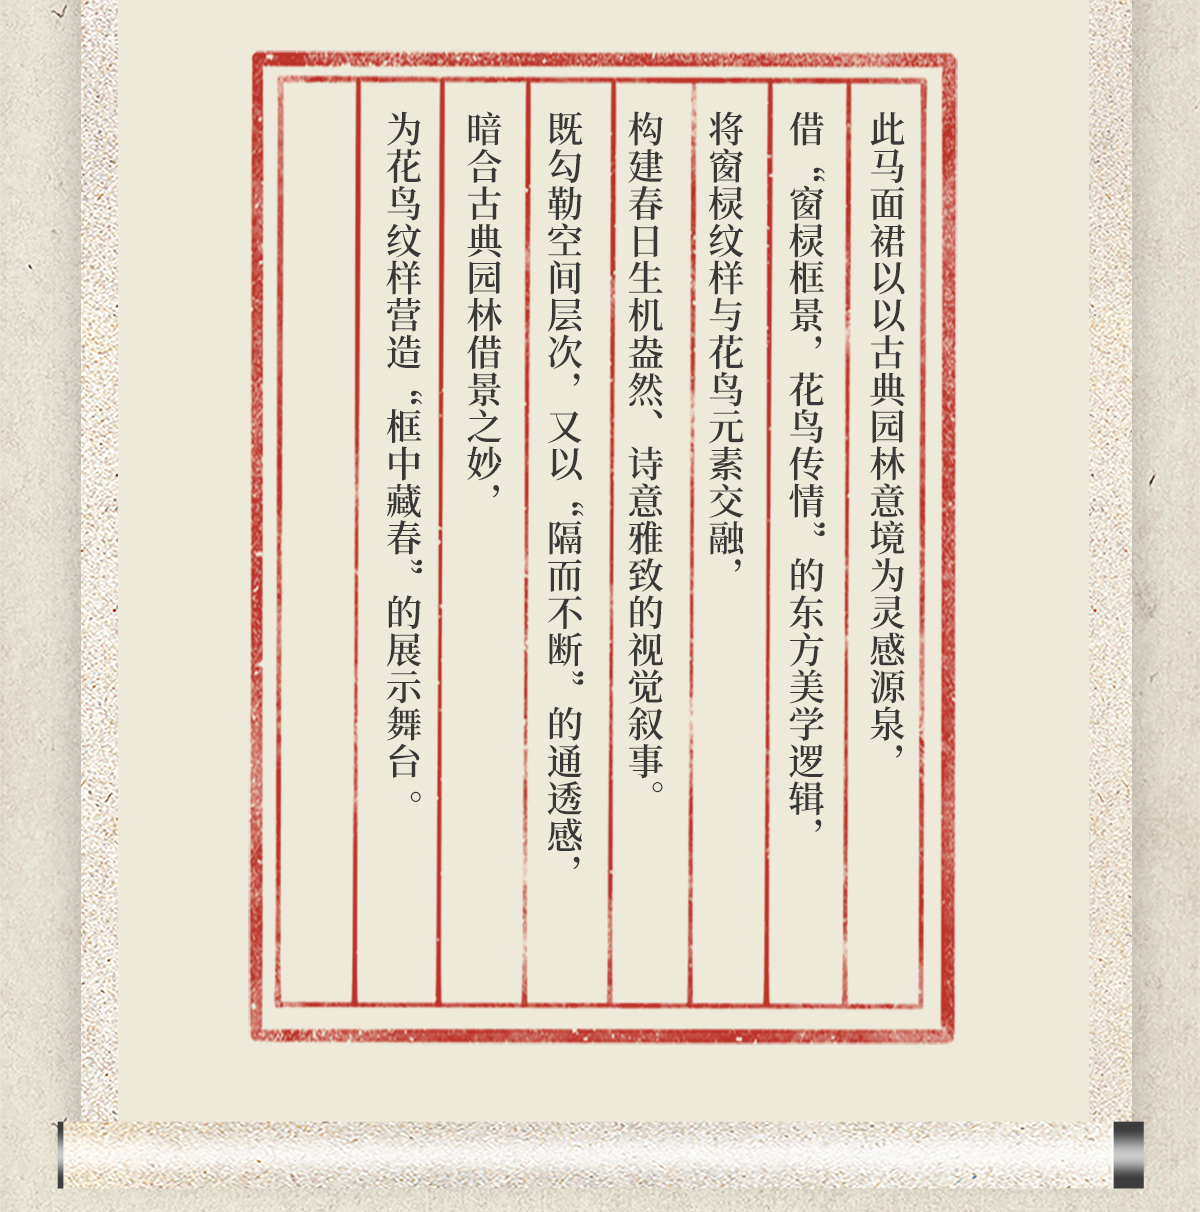 此马面裙以以古典园林意境为灵感源泉，
借“窗棂框景，花鸟传情”的东方美学逻辑，
将窗棂纹样与花鸟元素交融，
构建春日生机盎然、诗意雅致的视觉叙事。
既勾勒空间层次，又以“隔而不断”的通透感，
暗合古典园林借景之妙，
为花鸟纹样营造“框中藏春”的展示舞台。